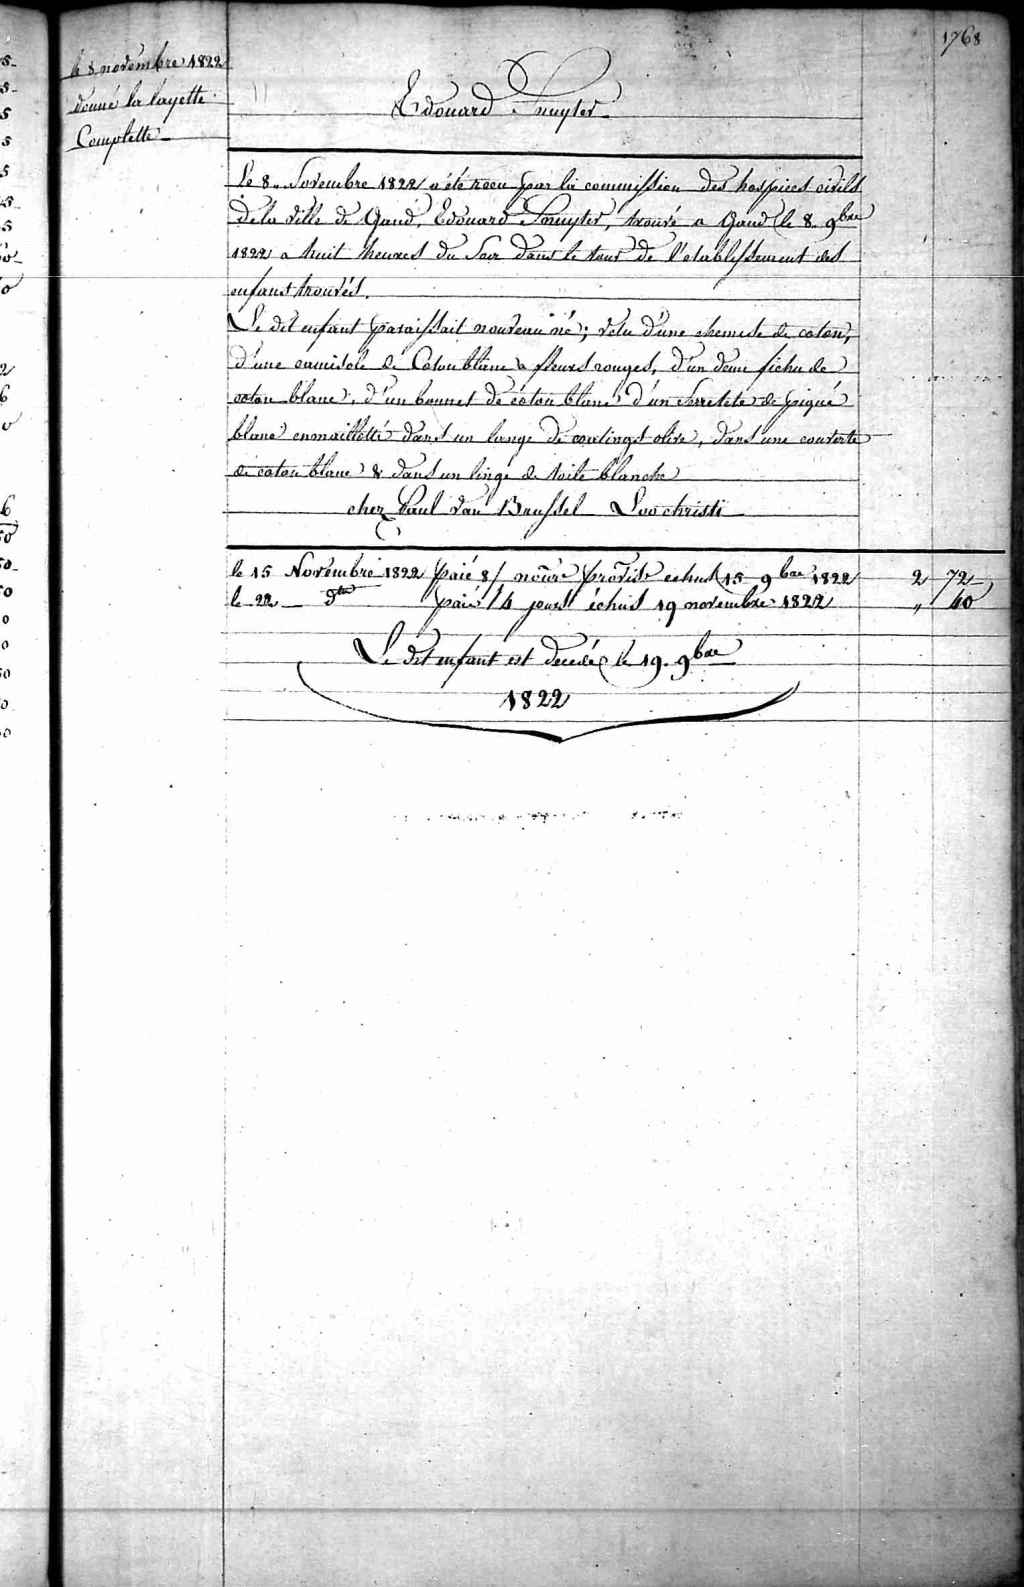 1768
le 8 novembre 1822
donné la layette
Complette
Edouard Snuyter
Le 8 Novembre 1822 a été recu par la commission des hospices civils
de la Ville de Gand, Edouard Snuyter, trouvé a Gand le 8 9bre
1822 a huit heures du Soir dans le tour de l'etablissement des
enfans trouvés.
Le dit enfant paraissait nouveau né; vetu d'une chemise de coton,
d'une camisole de Coton blanc a fleurs rouges, d'un demi fichu de
coton blanc, d'un bonnet de coton blanc d'un Serretete de piqué
blanc enmaillotté dans un lange de coatings olive, dans une couverte
de coton blanc & dans un linge de toile blanche
chez Paul Van Brussel Loochristi
le 15 Novembre 1822 paié 8/ nourre provis echus 15 9bre 1822 2 72
le 22 dto paié 4 jours échus 19 novembre 1822 " 40
Le dit enfant est decedé le 19. 9bre
1822